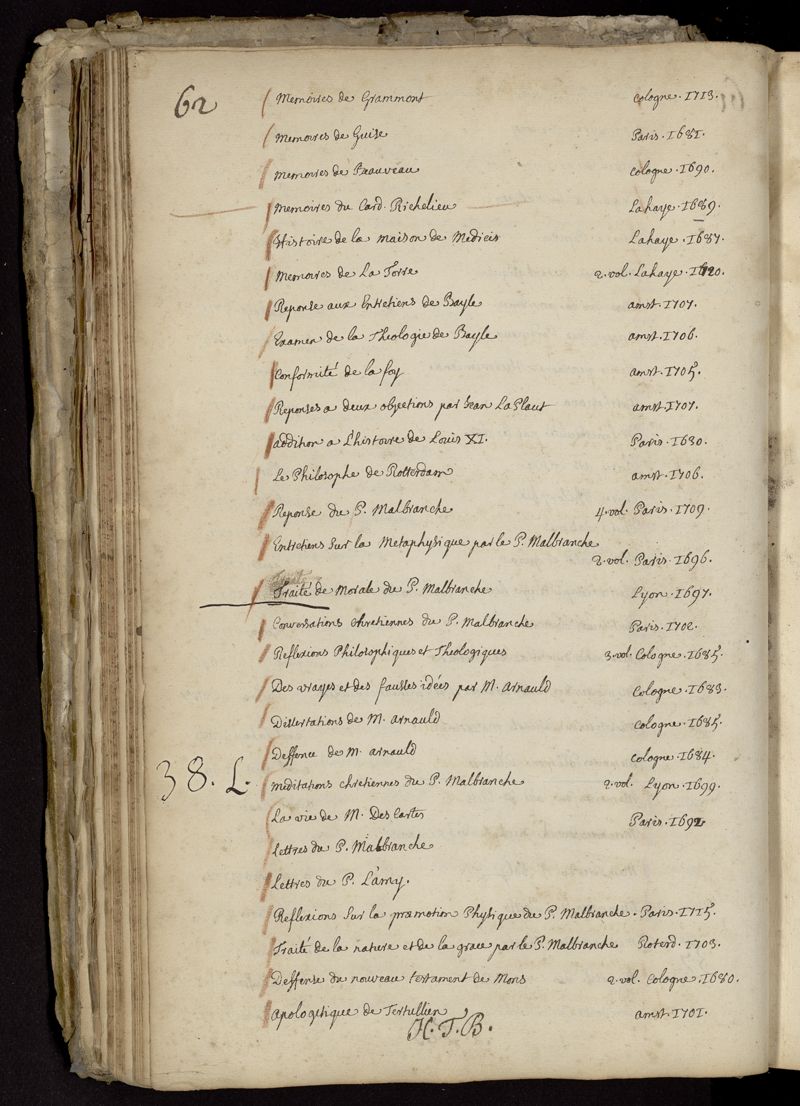 62
Memoires de Grammont Cologne. 1713.
Memoires de Guise Paris. 1681.
Memoires de Beauveau Cologne. 1690.
Memoires du Card. Richelieu Lahaye. 1689.
Histoire de la maison de Medicis Lahaye. 1687.
Memoires de La Torre 2. vol. Lahaye.
Reponse aux Entretiens de Bayle amst. 1707.
Examen de la Theologie de Bayle amst. 1706.
Conformité de la foy amst. 1705.
Reponses a deux objections par Jean La Plaut amst. 1707.
addition a L'histoire de Louis XI. Paris. 1630.
Le Philosophe de Rotterdam amst. 1706.
Reponse du P. Malbranche 4. vol. Paris. 1709.
Entretiens sur la Metaphysique par le P. Malbranche
2. vol. Paris. 1696.
Traité de Morale du P. Malbranche Lyon. 1697.
Conversations chretiennes du P. Malbranche Paris. 1702.
Reflexions Philosophiques et Theologiques 3. vol. Cologne. 1685.
Des vrayes et des fausses idées par M. Arnauld Cologne. 1683.
Dissertations de M. Arnauld Cologne. 1685.
Deffence de M. arnauld Cologne. 1684.
38. L. Meditations chretiennes du P. Malbranche 2. vol. Lyon. 1699.
La vie de M. Des Cartes Paris. 1692
Lettres du P. Malbranche
Lettres du P. L'amy.
Reflexions sur la præmotion Physique du P. Malbranche. Paris. 1715.
Traité de la nature et de la grace par le P. Malbranche Roterd. 1703.
Deffense du nouveau testament de Mons 2. vol. Cologne. 1680.
apologetique de Tertullien amst. 1701.
H. T. B.